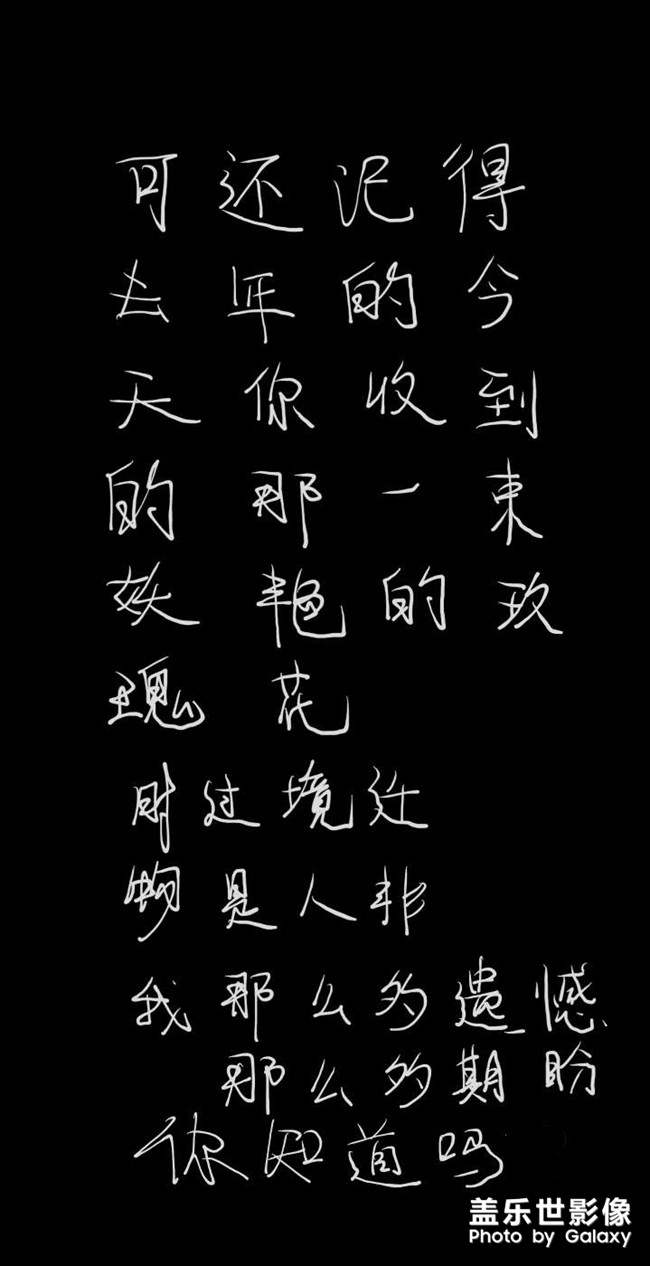 可还记得
去年的今
天你收到
的那一束
妖艳的玫
瑰花
时过境迁
物是人非
我那么多遗憾
那么多期盼
你知道吗
盖乐世影像
Photo by Galaxy